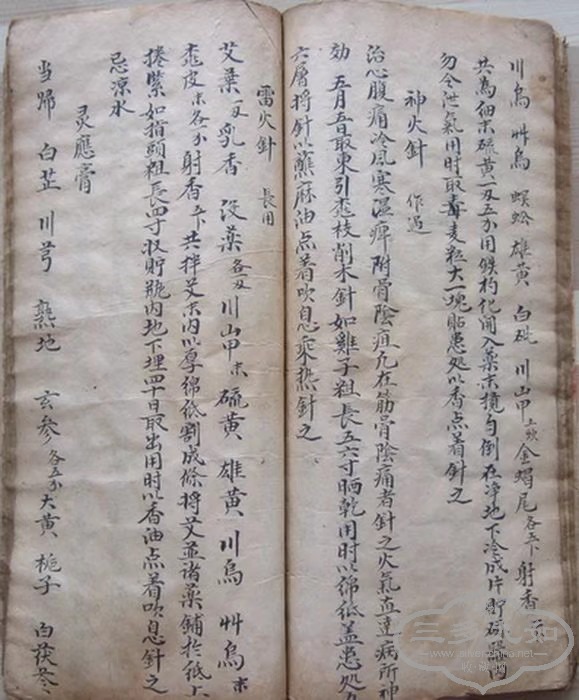 川烏 艸烏 蜈蚣 雄黄 白砒 川山甲 土炒 金蝎尾 各五卜 射香
共為細末硫黄一刄五分用鉄杓化開入藥末搅匀倒在净地下冷成片貯磁礶内
勿令泄氣用時取青麦粒大一塊貼患処以香点着針之
神火針 作過
治心腹痛冷風寒湿痺附骨陰疽凢在筋骨陰痛者針之火氣直達病所神
効 五月五日取東引桃枝削木針如雞子粗長五六寸晒乾用時以綿紙盖患処五
六層将針以蘸麻油点着吹息乘热針之
雷火針 長用
艾葉一刄 乳香 没藥 各一刄 川山甲末 硫黄 雄黄 川烏 艸烏末
桃皮末各分 射香五卜 共拌艾末内以厚綿紙割成條将艾並諸藥鋪于紙上
捲緊如指頭粗長四寸収貯瓶内地下埋四十日取出用時以香油点着吹息針之
忌凉水
灵應膏
当歸 白芷 川芎 熟地 玄参 各五分 大黄 栀子 白蔹
三乡永如
收藏网